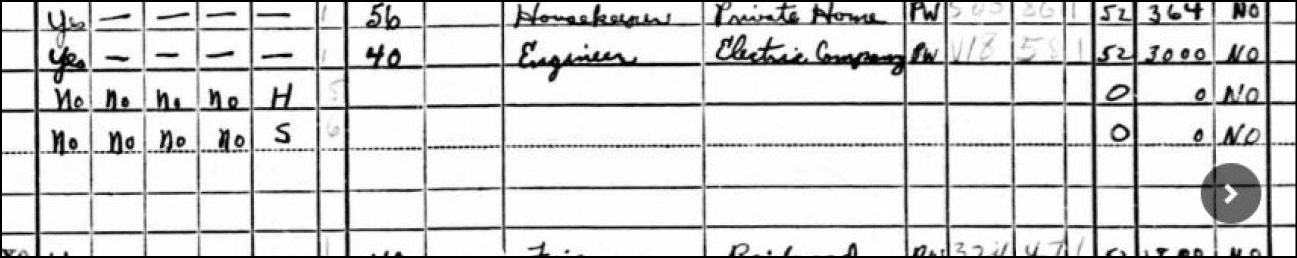 Yes — — — — 1 56 Housekeeper Private Home PW 500 86 1 52 364 NO
Yes — — — — 1 40 Engineer Electric Company PW V18 58 1 52 3000 NO
No No No No H 5 0 0 NO
No No No No S 6 0 0 NO
Railroad PW